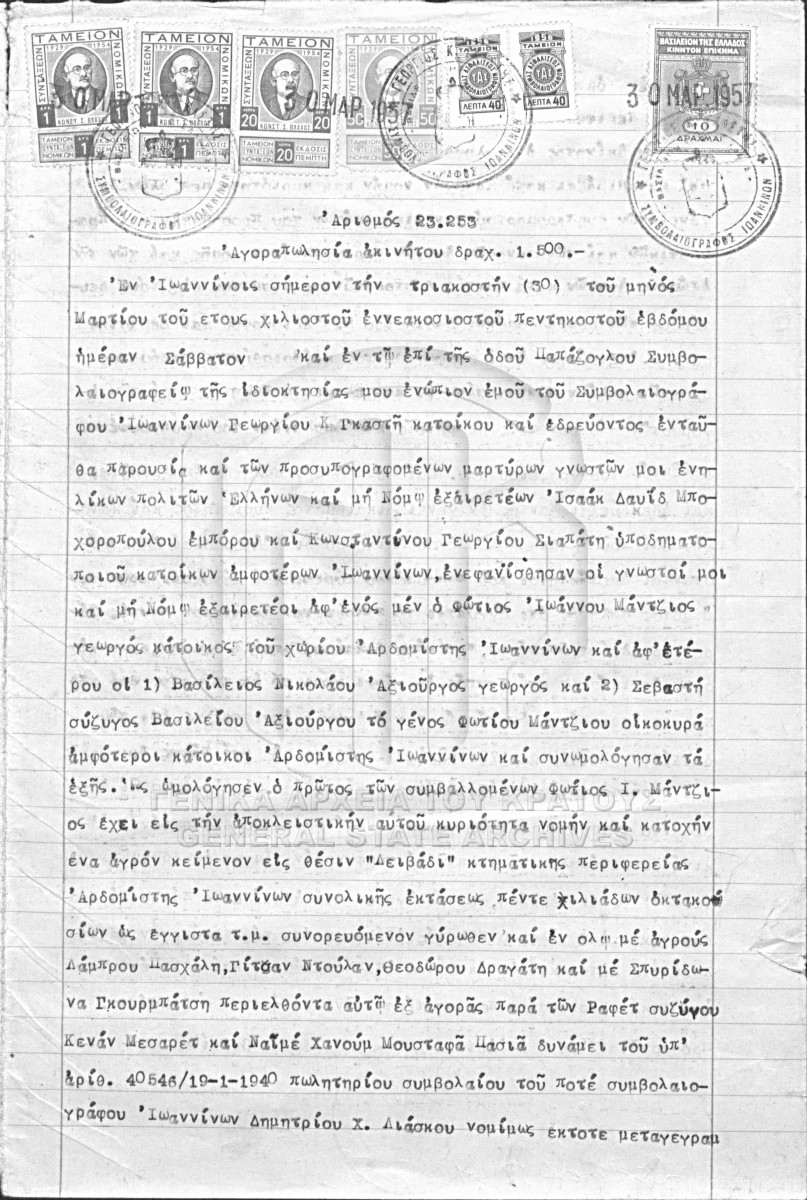 ΤΑΜΕΙΟΝ ΝΟΜΙΚΩΝ ΣΥΝΤΑΞΕΩΝ 1929 1954 ΚΩΝΣΤ Σ. ΒΛΑΧΟΣ 1 1
ΤΑΜΕΙΟΝ ΝΟΜΙΚΩΝ 1 ΕΚΔΟΣΙΣ ΠΕΜΠΤΗ
ΤΑΜΕΙΟΝ ΝΟΜΙΚΩΝ ΣΥΝΤΑΞΕΩΝ 1929 1954 ΚΩΝΣΤ Σ. ΒΛΑΧΟΣ 1 1
ΤΑΜΕΙΟΝ ΝΟΜΙΚΩΝ ΣΥΝΤΑΞΕΩΝ 1929 1954 ΚΩΝΣΤ Σ. ΒΛΑΧΟΣ 20 20
ΤΑΜΕΙΟΝ ΝΟΜΙΚΩΝ 20 ΕΚΔΟΣΙΣ ΠΕΜΠΤΗ
ΤΑΜΕΙΟΝ ΝΟΜΙΚΩΝ 50
ΤΑΜΕΙΟΝ ΛΕΠΤΑ 40
ΤΑΜΕΙΟΝ ΛΕΠΤΑ 40
ΒΑΣΙΛΕΙΟΝ ΤΗΣ ΕΛΛΑΔΟΣ
ΚΙΝΗΤΟΝ ΕΠΙΣΗΜΑ
10
ΔΡΑΧΜΑΙ
30 ΜΑΡ. 1957
30 ΜΑΡ. 1957
ΣΥΜΒΟΛΑΙΟΓΡΑΦΟΣ ΙΩΑΝΝΙΝΩΝ
Ἀριθμός 23.253
Ἀγοραπωλησία ἀκινήτου δραχ. 1.500.-
Ἐν Ἰωαννίνοις σήμερον τήν τριακοστήν (30) τοῦ μηνός
Μαρτίου τοῦ ετους χιλιοστοῦ ἐννεακοσιοστοῦ πεντηκοστοῦ ἑβδόμου
ἡμέραν Σάββατον καί ἐν τῷ ἐπί τῆς ὁδοῦ Παπάζογλου Συμβο-
λαιογραφείῳ τῆς ἰδιοκτησίας μου ἐνώπιον ἐμοῦ τοῦ Συμβολαιογρά-
φου Ἰωαννίνων Γεωργίου Κ Γκαστῆ κατοίκου καί ἑδρεύοντος ἐνταῦ-
θα παρουσίᾳ καί τῶν προσυπογραφομένων μαρτύρων γνωστῶν μοι ἐνη-
λίκων πολιτῶν Ἑλλήνων καί μή Νόμῳ ἐξαιρετέων Ἰσαάκ Δαυίδ Μπο-
χοροπούλου ἐμπόρου καί Κωνσταντίνου Γεωργίου Σιαπάτη ὑποδηματο-
ποιοῦ κατοίκων ἀμφοτέρων Ἰωαννίνων,ἐνεφανίσθησαν οἱ γνωστοί μοι
καί μή Νόμῳ ἐξαιρετέοι ἀφ'ἑνός μέν ὁ Φώτιος Ἰωάννου Μάντζιος
γεωργός κάτοικος τοῦ χωρίου Ἀρδομίστης Ἰωαννίνων καί ἀφ'ἑτέ-
ρου οἱ 1) Βασίλειος Νικολάου Ἀξιοῦργος γεωργός καί 2) Σεβαστή
σύζυγος Βασιλείου Ἀξιούργου τό γένος Φωτίου Μάντζιου οἰκοκυρά
ἀμφότεροι κάτοικοι Ἀρδομίστης Ἰωαννίνων καί συνωμολόγησαν τά
ἑξῆς. Ὡς ὡμολόγησεν ὁ πρῶτος τῶν συμβαλλομένων Φώτιος Ι. Μάντζι-
ος ἔχει εἰς τήν ἀποκλειστικήν αὐτοῦ κυριότητα νομήν καί κατοχήν
ἕνα ἀγρόν κείμενον εἰς θέσιν "Λειβάδι" κτηματικῆς περιφερείας
Ἀρδομίστης Ἰωαννίνων συνολικῆς ἐκτάσεως πέντε χιλιάδων ὀκτακο
σίων ὡς ἔγγιστα τ.μ. συνορευόμενον γύρωθεν καί ἐν ολῳ μέ ἀγρούς
Λάμπρου Πασχάλη,Γίτσαν Ντούλαν,Θεοδώρου Δραγάτη καί μέ Σπυρίδω-
να Γκουρμπάτση περιελθόντα αὐτῷ ἐξ ἀγορᾶς παρά τῶν Ραφέτ συζύγου
Κενάν Μεσαρέτ καί Ναϊμέ Χανούμ Μουσταφᾶ Πασιᾶ δυνάμει τοῦ ὑπ'
ἀρίθ. 40546/19-1-1940 πωλητηρίου συμβολαίου τοῦ ποτέ συμβολαιο-
γράφου Ἰωαννίνων Δημητρίου Χ. Λιάσκου νομίμως ἔκτοτε μεταγεγραμ
ΓΕΝΙΚΑ ΑΡΧΕΙΑ ΤΟΥ ΚΡΑΤΟΥΣ
GENERAL STATE ARCHIVES